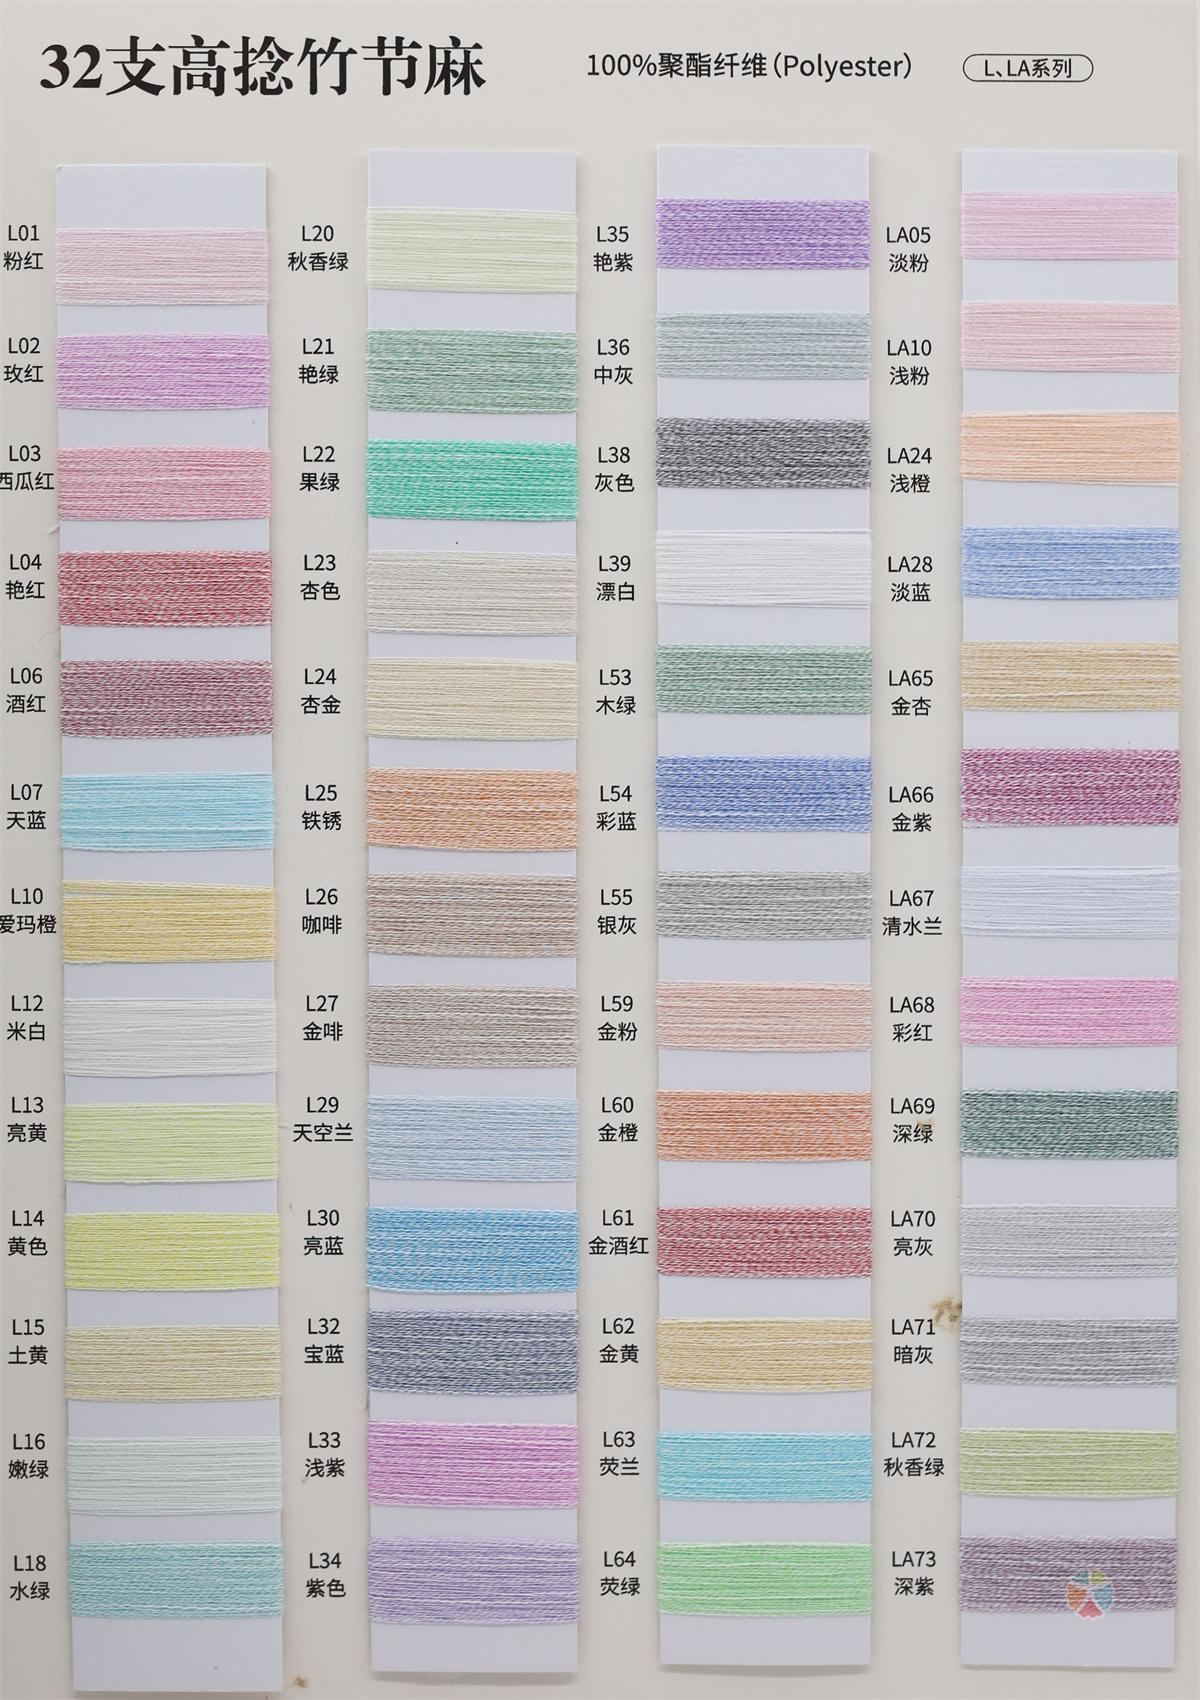 32支高捻竹节麻
100%聚酯纤维(Polyester)
L、LA系列
L01
粉红
L02
玫红
L03
西瓜红
L04
艳红
L06
酒红
L07
天蓝
L10
爱玛橙
L12
米白
L13
亮黄
L14
黄色
L15
土黄
L16
嫩绿
L18
水绿
L20
秋香绿
L21
艳绿
L22
果绿
L23
杏色
L24
杏金
L25
铁锈
L26
咖啡
L27
金啡
L29
天空兰
L30
亮蓝
L32
宝蓝
L33
浅紫
L34
紫色
L35
艳紫
L36
中灰
L38
灰色
L39
漂白
L53
木绿
L54
彩蓝
L55
银灰
L59
金粉
L60
金橙
L61
金酒红
L62
金黄
L63
荧兰
L64
荧绿
LA05
淡粉
LA10
浅粉
LA24
浅橙
LA28
淡蓝
LA65
金杏
LA66
金紫
LA67
清水兰
LA68
彩红
LA69
深绿
LA70
亮灰
LA71
暗灰
LA72
秋香绿
LA73
深紫